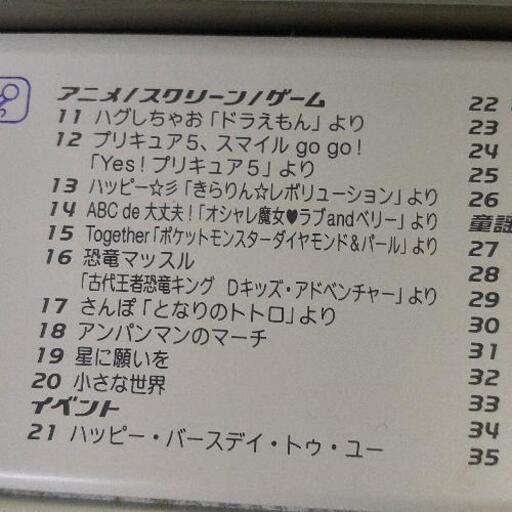 アニメ/スクリーン/ゲーム
11 ハグしちゃお「ドラえもん」より
12 プリキュア5、スマイル go go!
「Yes! プリキュア5」より
13 ハッピー☆彡「きらりん☆レボリューション」より
14 ABC de 大丈夫!「オシャレ魔女♥ラブandベリー」より
15 Together「ポケットモンスターダイヤモンド&パール」より
16 恐竜マッスル
「古代王者恐竜キング Dキッズ・アドベンチャー」より
17 さんぽ「となりのトトロ」より
18 アンパンマンのマーチ
19 星に願いを
20 小さな世界
イベント
21 ハッピー・バースデイ・トゥ・ユー
22
23
24
25
26
童謡
27
28
29
30
31
32
33
34
35